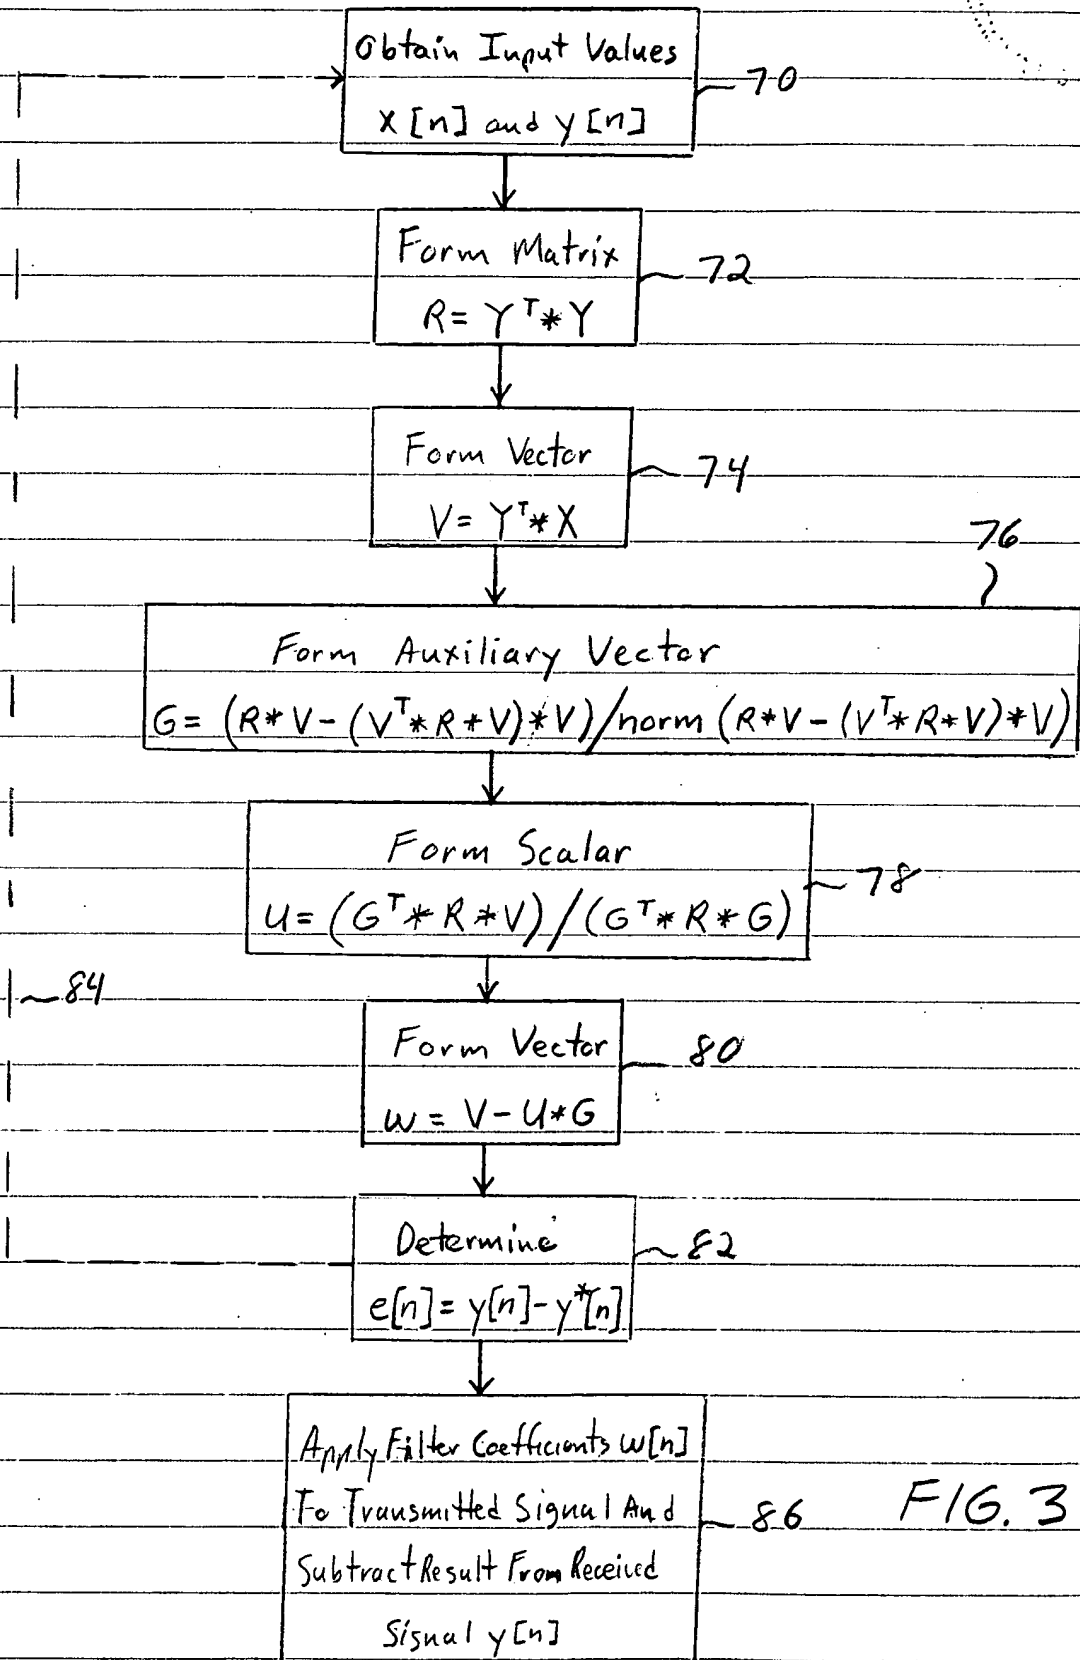 Obtain Input Values
x [n] and y [n]
70
Form Matrix
R = Yᵀ * Y
72
Form Vector
V = Yᵀ * X
74
76
Form Auxiliary Vector
G = (R*V - (Vᵀ*R*V)*V)/norm (R*V - (Vᵀ*R*V)*V)
Form Scalar
U = (Gᵀ*R*V)/(Gᵀ*R*G)
78
84
Form Vector
w = V - U*G
80
Determine
e[n] = y[n] - y*[n]
82
Apply Filter Coefficients w[n]
To Transmitted Signal And
Subtract Result From Received
Signal y [n]
86
FIG. 3